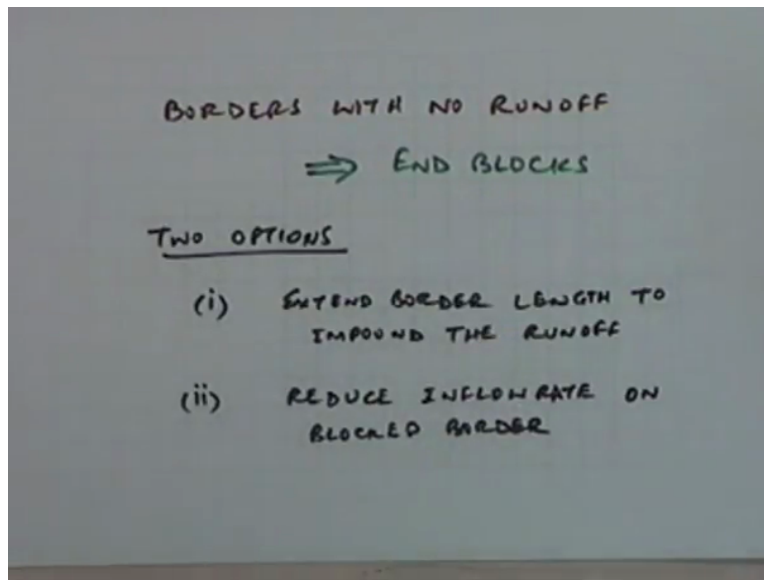 BORDERS WITH NO RUNOFF
⇒ END BLOCKS
TWO OPTIONS
(i) EXTEND BORDER LENGTH TO
IMPOUND THE RUNOFF
(ii) REDUCE INFLOW RATE ON
BLOCKED BORDER